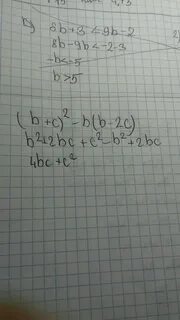 c) 8b+3<9b-2
8b-9b<-2-3
-b<-5
b>5
(b+c)²-b(b-2c)
b²+2bc+c²-b²+2bc
4bc+c²